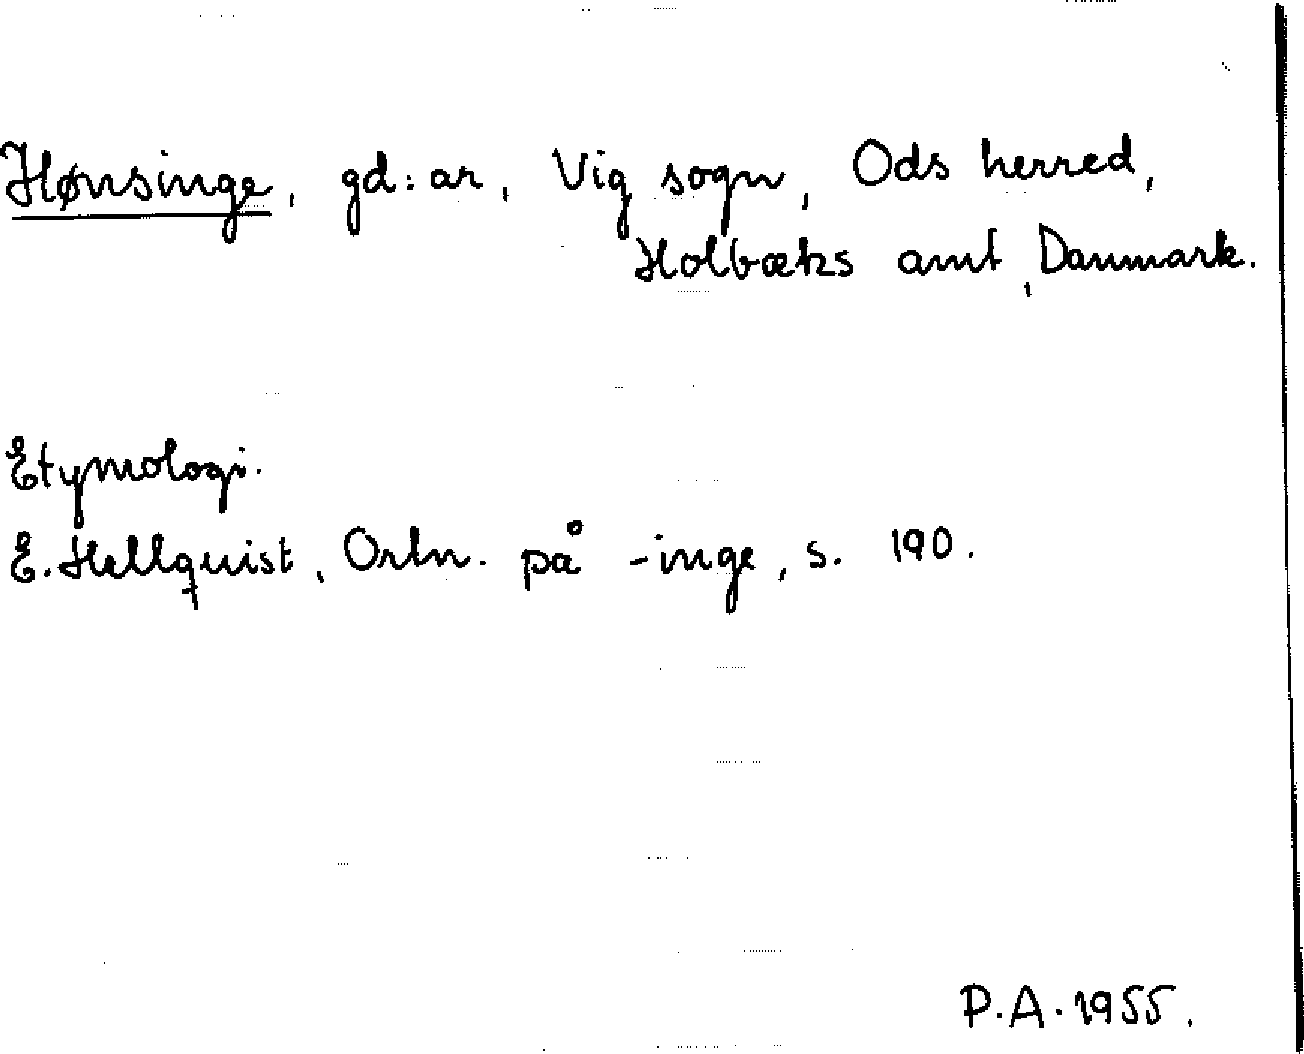 Hønsinge, gd:ar, Vig sogn, Ods herred,
Holbæks amt, Danmark.
Etymologi.
E. Hellquist, Ortn. på -inge, s. 190.
P.A. 1955.